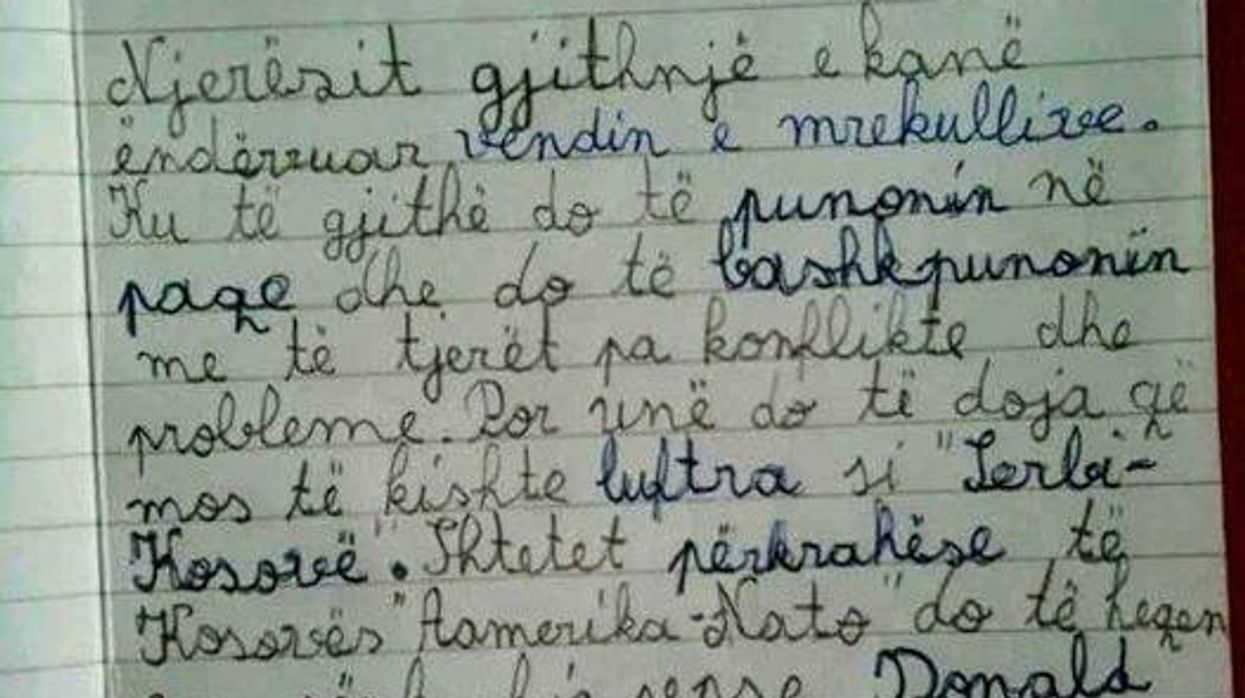 Njerësit gjithnjë e kanë
ëndërruar vendin e mrekullive.
Ku të gjithë do të punonin në
paqe dhe do të bashkpunonin
me të tjerët pa konflikte dhe
probleme. Por unë do të doja që
mos të kishte luftra si "Serbi-
Kosovë". Shtetet përkrahëse të
Kosovës "Aamerika-Nato" do të heqen
Donald